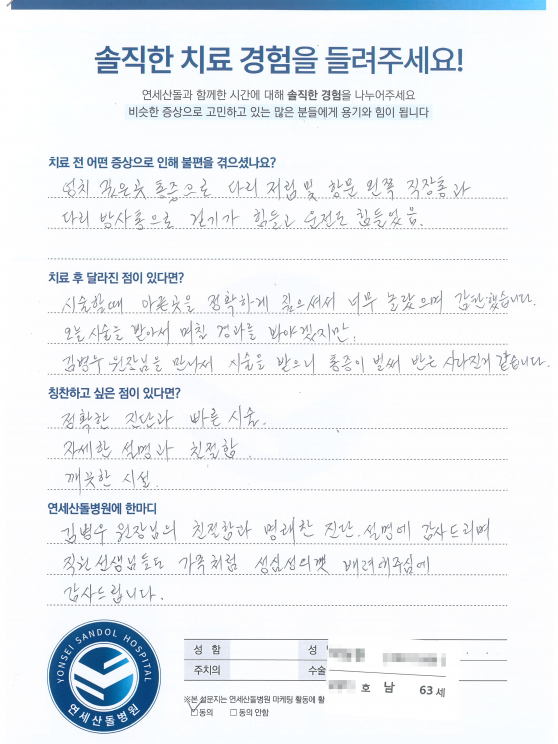 솔직한 치료 경험을 들려주세요!
연세산돌과 함께한 시간에 대해 솔직한 경험을 나누어주세요
비슷한 증상으로 고민하고 있는 많은 분들에게 용기와 힘이 됩니다
치료 전 어떤 증상으로 인해 불편을 겪으셨나요?
엉치 깊은곳 통증으로 다리 저림 및 항문 왼쪽 직장통과
다리 방사통으로 걷기가 힘들고 운전도 힘들었음.
치료 후 달라진 점이 있다면?
시술할때 아픈곳을 정확하게 짚으셔서 너무 놀랐으며 감탄했습니다.
오늘 시술을 받아서 며칠 경과를 봐야겠지만,
김병우 원장님을 만나서 시술을 받으니 통증이 벌써 반은 사라진거 같습니다.
칭찬하고 싶은 점이 있다면?
정확한 진단과 빠른 시술.
자세한 설명과 친절함.
깨끗한 시설.
연세산돌병원에 한마디
김병우 원장님의 친절함과 명쾌한 진단. 설명에 감사드리며
직원선생님들도 가족처럼 성심성의껏 배려해주심에
감사드립니다.
성 함 성
주치의 수술
호 남 63세
※본 설문지는 연세산돌병원 마케팅 활동에 활
동의 동의 안함
YONSEI SANDOL HOSPITAL
연세산돌병원